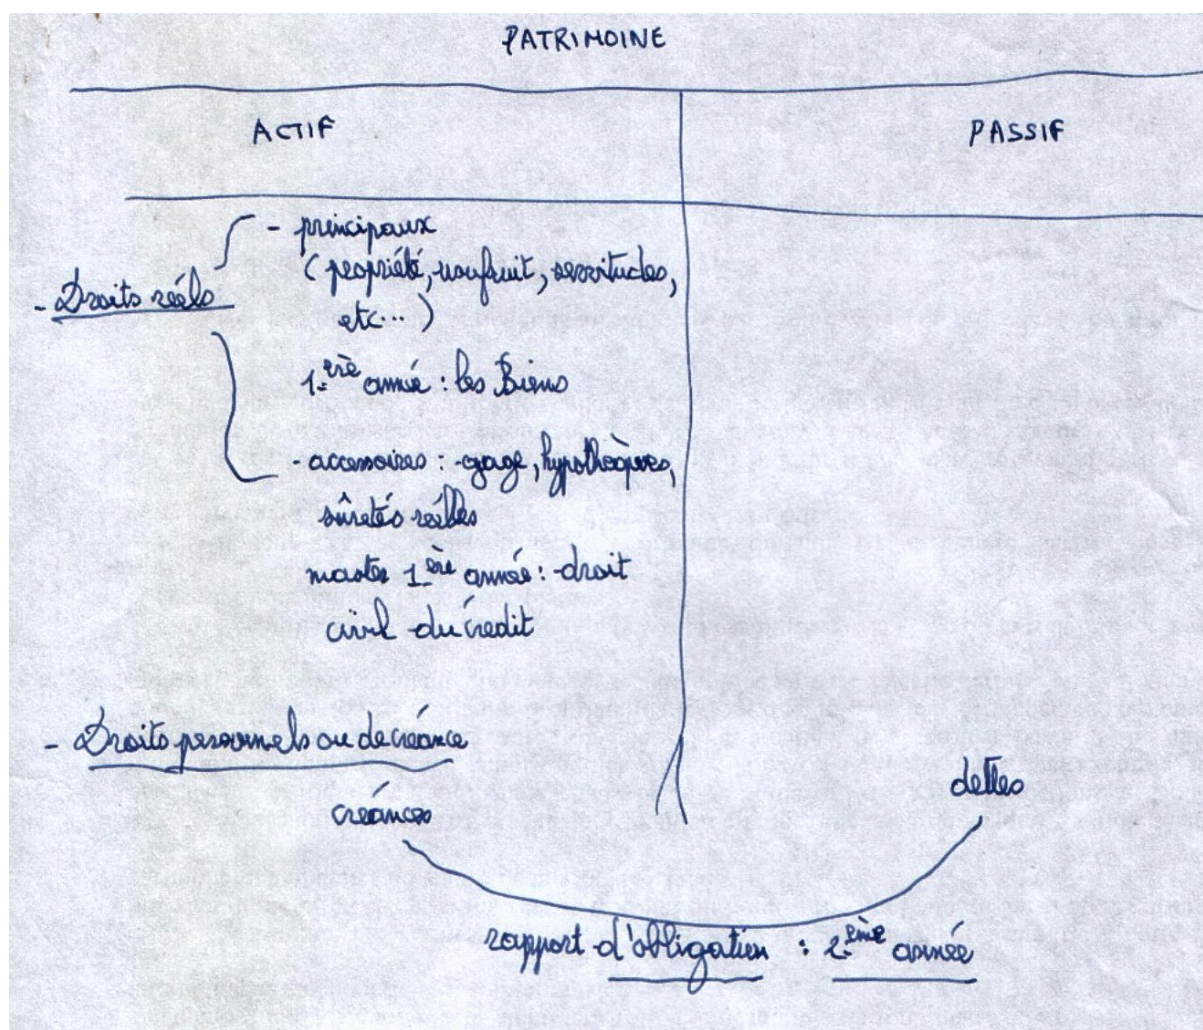 PATRIMOINE
ACTIF
PASSIF
- Droits réels
- principaux
(propriété, usufruit, servitudes,
etc...)
1ère année : les Biens
- accessoires : gage, hypothèques,
sûretés réelles
master 1ère année : droit
civil du crédit
- Droits personnels ou de créance
créances
dettes
rapport d'obligation : 2ème année